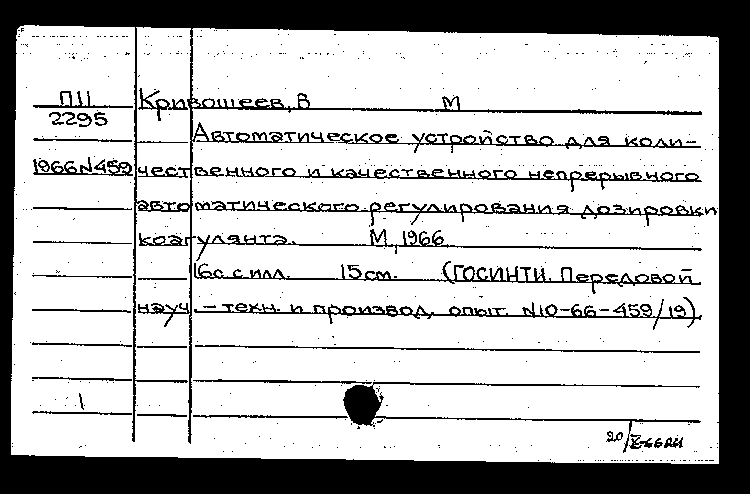 П11 Кривошеев, В М
2295
Автоматическое устройство для коли-
1966N459 чественного и качественного непрерывного
автоматического регулирования дозировки
коагулянта. М, 1966
16с с илл. 15см. (ГОСИНТИ. Передовой
науч. – техн. и производ, опыт. N10-66-459/19).
1